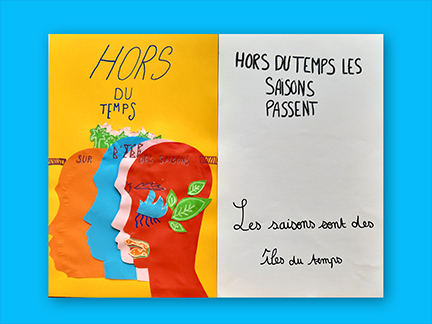 HORS
DU
TEMPS
SUR DES SAISONS
HORS DU TEMPS LES
SAISONS
PASSENT
Les saisons sont des
îles du temps